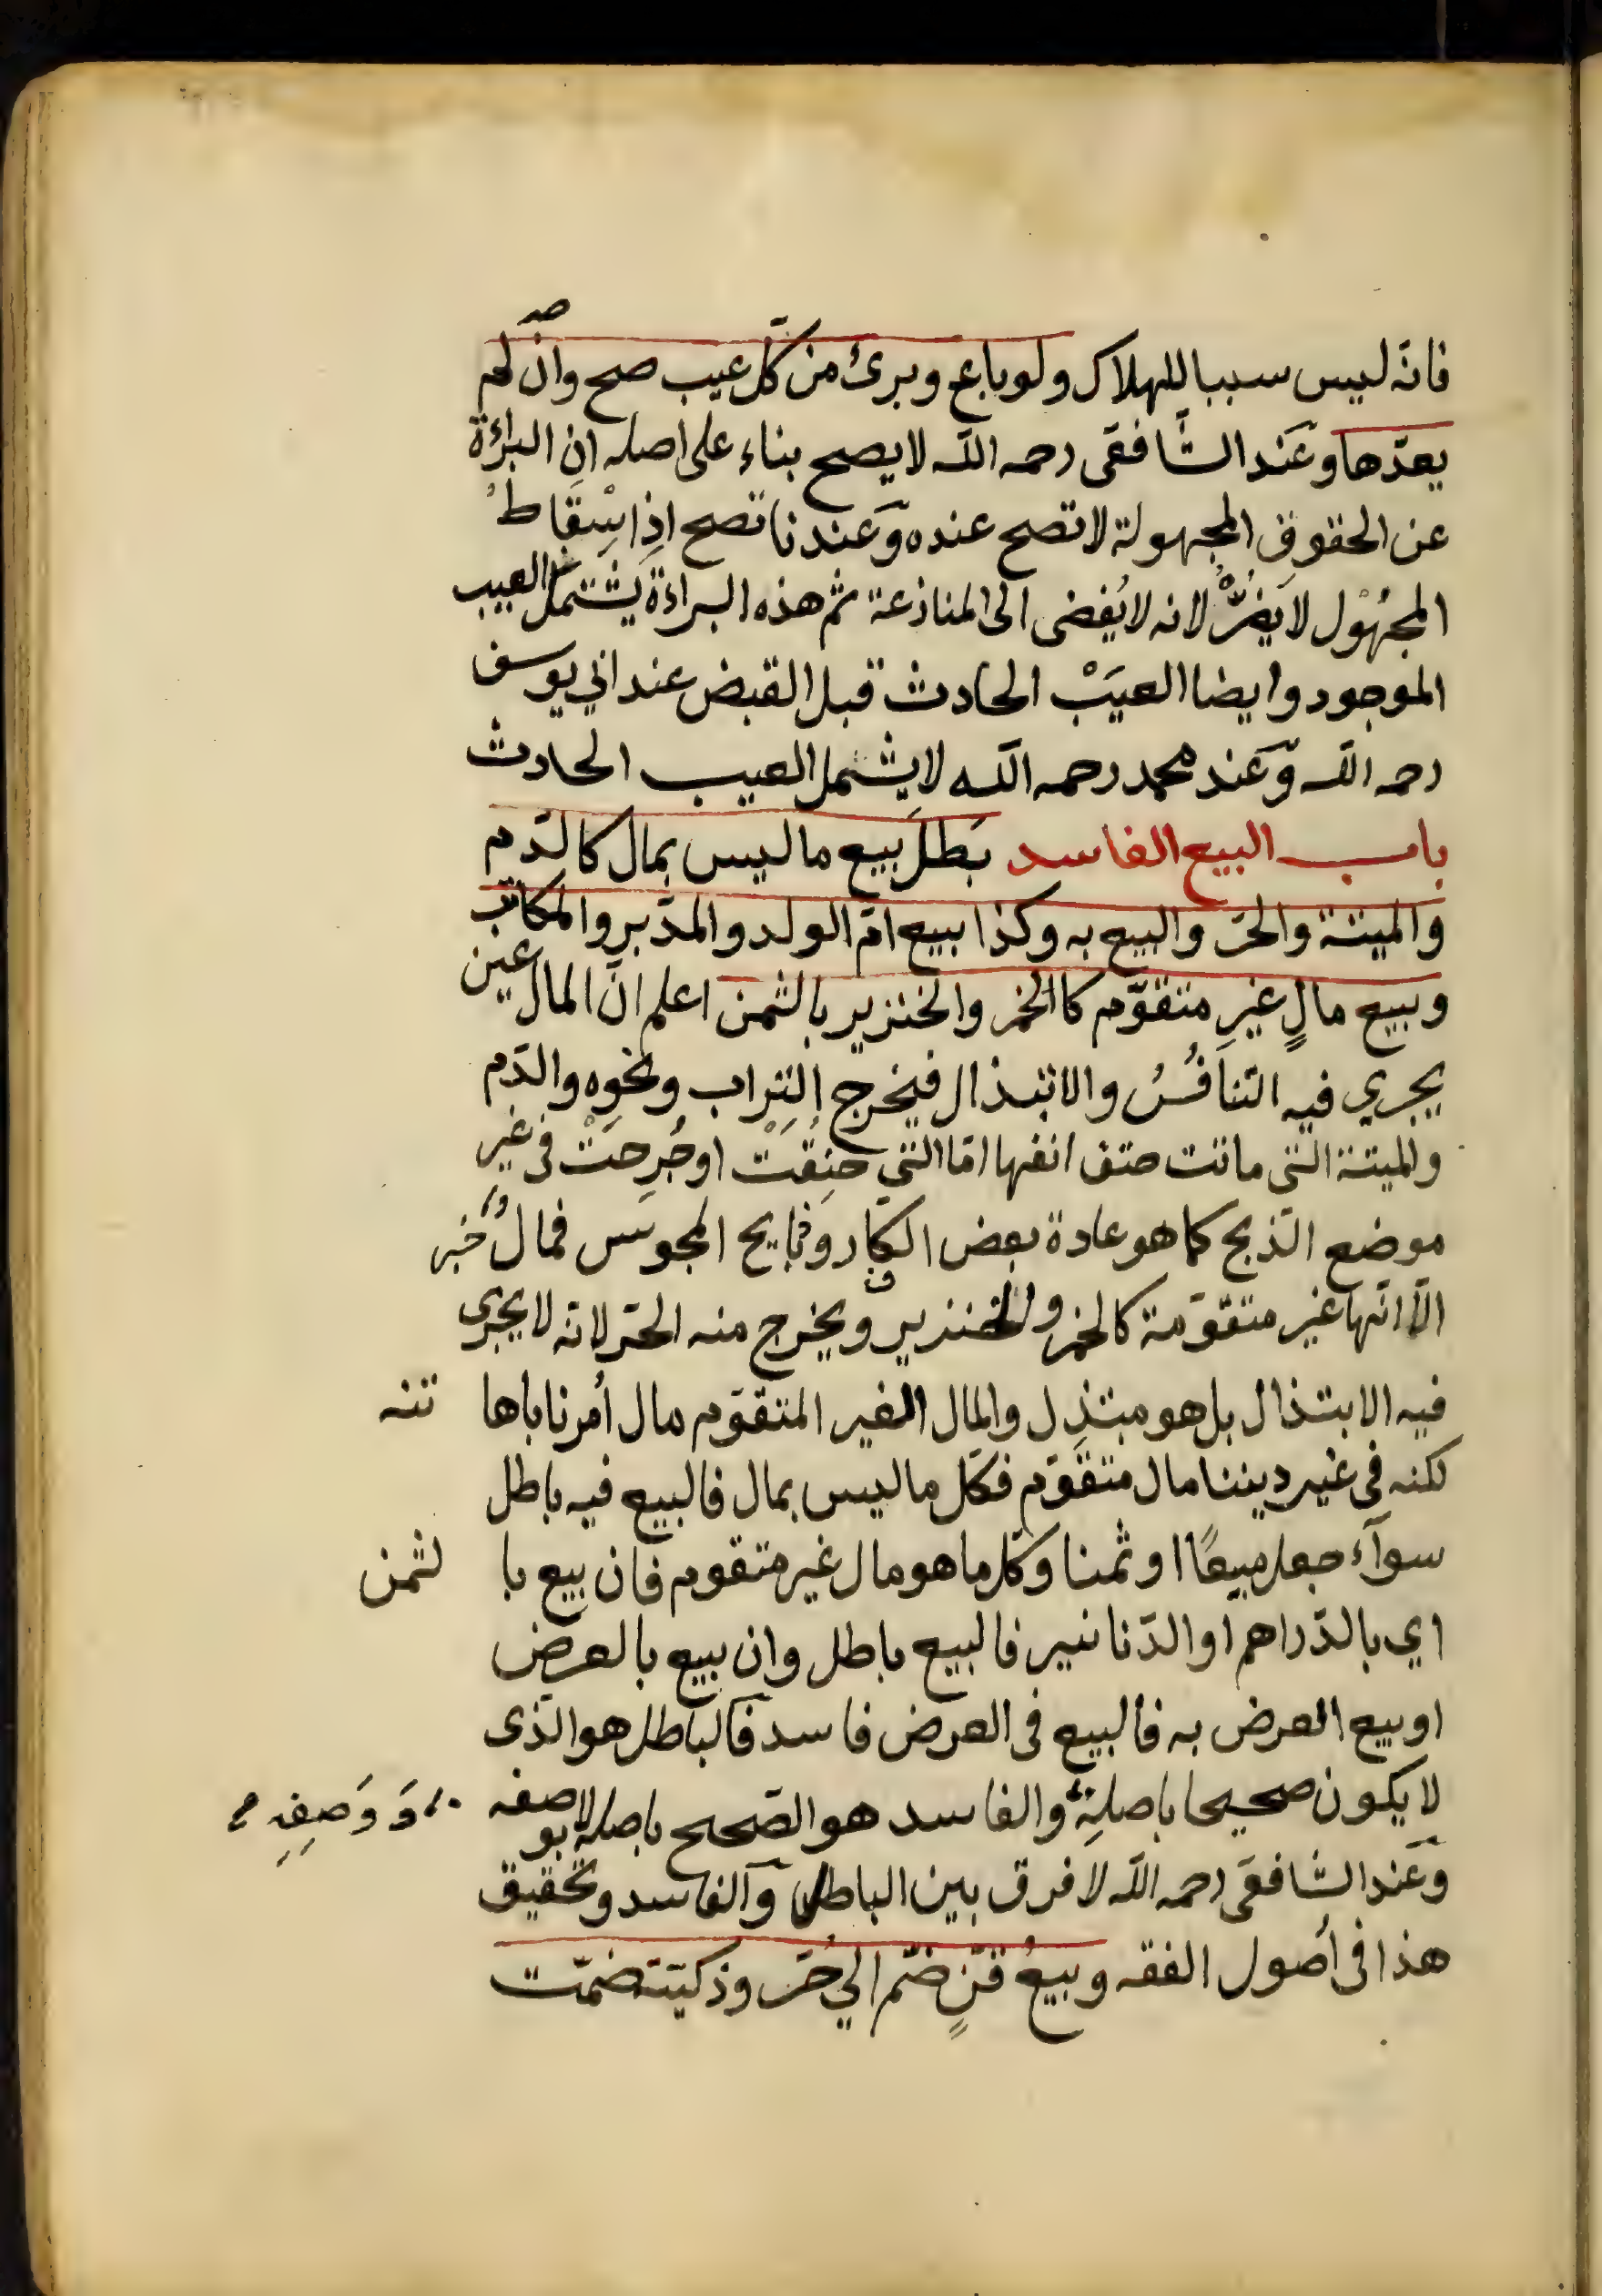 فانّه ليس سببا للهلاك ولو باع وبرئ من كلّ عيب صح وان لم
يعدّها وعند الشّافعى رحمه اللّه لا يصح بناء على اصله ان البراءة
عن الحقوق المجهولة لا تصح عنده وعندنا تصح اذ اسْقاطُ
المجهُوْل لا يضرُّ لانه لا يُفضى الى المنازعة ثم هذه البراءة يشتمل العيب
الموجود وايضا العيَبْ الحادث قبل القبض عند ابي يوسف
رحمه اللّه وعند محمد رحمه اللّه لا يشمل العيب الحادث
باب البيع الفاسد بَطَلَ بيع ما ليس بمال كالدّم
والميتة والحرّ والبيع به وكذا بيع امّ الولد والمدّبر والمكاتب
وبيع مالٍ غيرِ متقوّم كا الخمر والخنزير بالثمن اعلم انّ المال عين
يجري فيه التنافُسُ والابتذال فيخرج التراب ونحوِه والدّم
والميتة التى ماتت حتف انفها امّا التي خنِقَتْ او جُرِحَتْ فى غيرِ
موضع الذّبح كما هو عادة بعض الكفّار وذبايح المجوس فمالُ خبر
الّا انّها غير متقوّمة كالخمر والخنزير ويخرج منه الحرّ لانّه لا يجرى
فيه الابتذال بل هو مبتذِل والمال الغير المتقوّم مال أُمرنا باها نته
لكنه فى غير ديننا مال متقوّم فكلّ ما ليس بمال فالبيع فيه باطل
سوآء جعل مبيعًا او ثمنا وكلّ ما هو مال غير متقوم فان بيع با لثمن
اي بالدّراهم او الدّنانير فالبيع باطل وان بيع بالعرض
او بيع العرض به فالبيع فى العرض فاسد فالباطل هو الذّى
لا يكون صحيحا باصلِهِ والفاسد هو الصّحيح باصله لا بو صفه
وَ وَصفِهِ
وعند الشّافعى رحمه اللّه لا فرق بين الباطل والفاسد وتحقيق
هذا فى أُصول الفقه وبيعُ قنٍّ ضّم الي حُرّ وذكيّة ضمّت